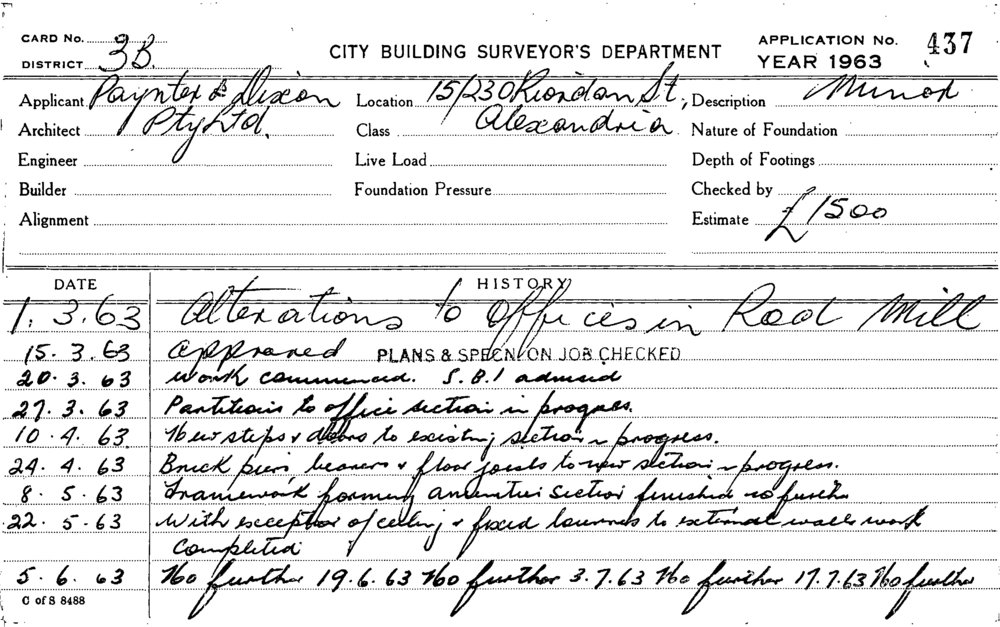 CARD No.
DISTRICT 3B.
CITY BUILDING SURVEYOR'S DEPARTMENT
APPLICATION No. 437
YEAR 1963
Applicant Paynter & Dixon Location 15/230 Riordan St, Description Minor
Architect Pty Ltd. Class Alexandria Nature of Foundation
Engineer Live Load Depth of Footings
Builder Foundation Pressure Checked by
Alignment Estimate £1500
DATE HISTORY
1. 3. 63 Alterations to offices in Rod Mill
15. 3. 63 Approved PLANS & SPECN. ON JOB CHECKED
20. 3. 63 Work commenced. S.B.I advised
27. 3. 63 Partitions to office section in progress.
10. 4. 63 New steps & doors to existing section in progress.
24. 4. 63 Brick piers bearers & floor joists to new section in progress.
8. 5. 63 Framework forming amenities section finished no further
22. 5. 63 With exception of ceiling & fixed louvres to external walls work
completed
5. 6. 63 No further 19.6.63 No further 3.7.63 No further 17.7.63 No further
C of S 8488